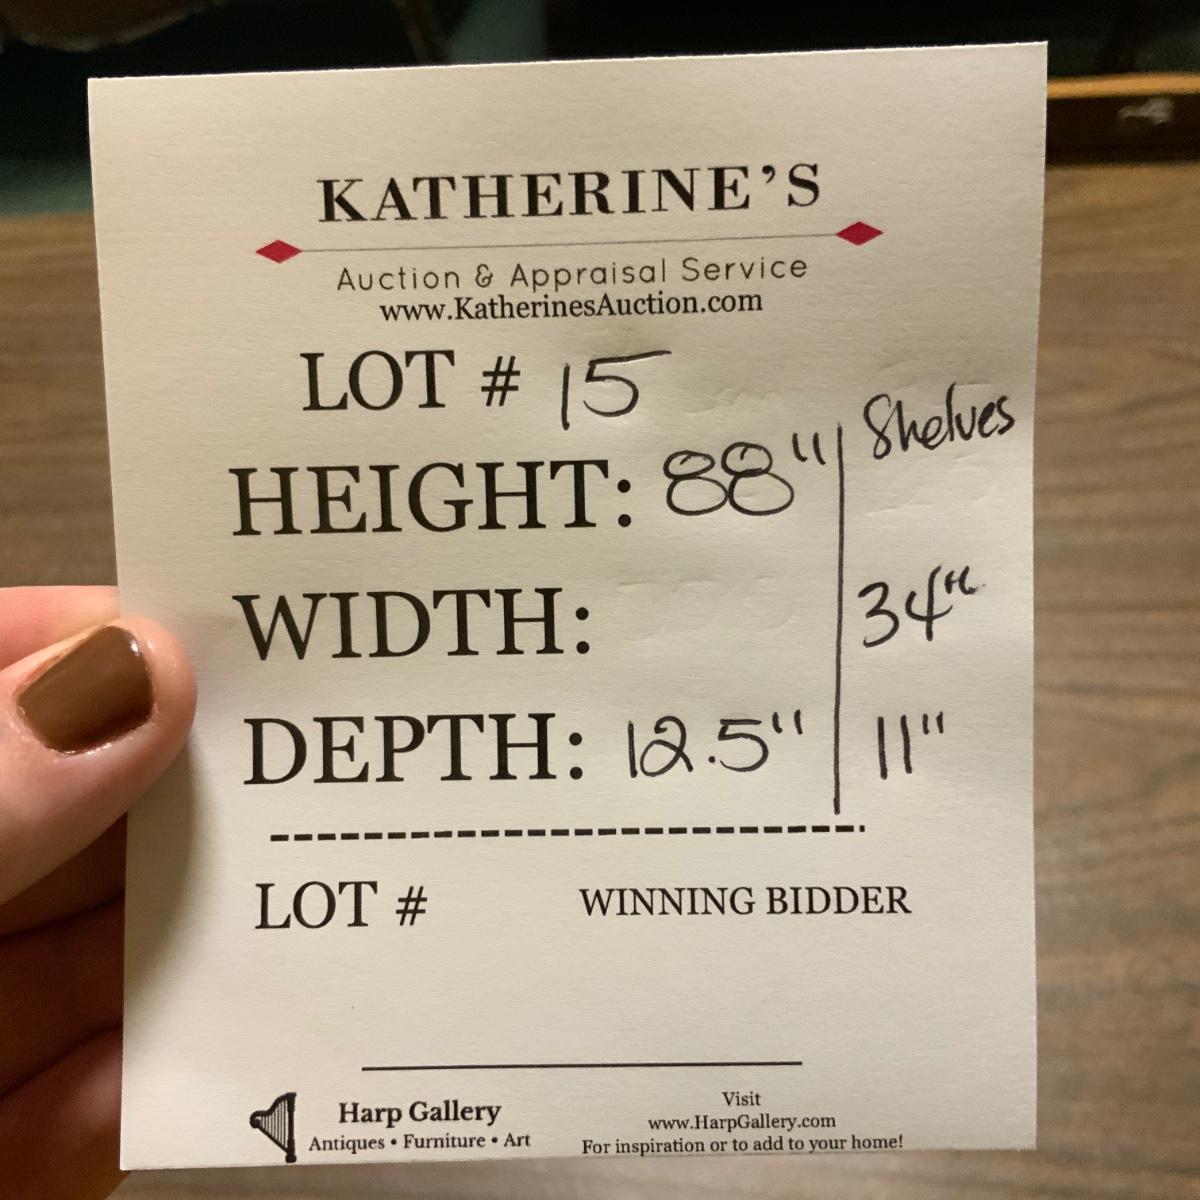 KATHERINE’S
Auction & Appraisal Service
www.KatherinesAuction.com
LOT # 15
Shelves
HEIGHT: 88"
WIDTH: 34"
DEPTH: 12.5" 11"
LOT # WINNING BIDDER
Harp Gallery
Antiques • Furniture • Art
Visit
www.HarpGallery.com
For inspiration or to add to your home!